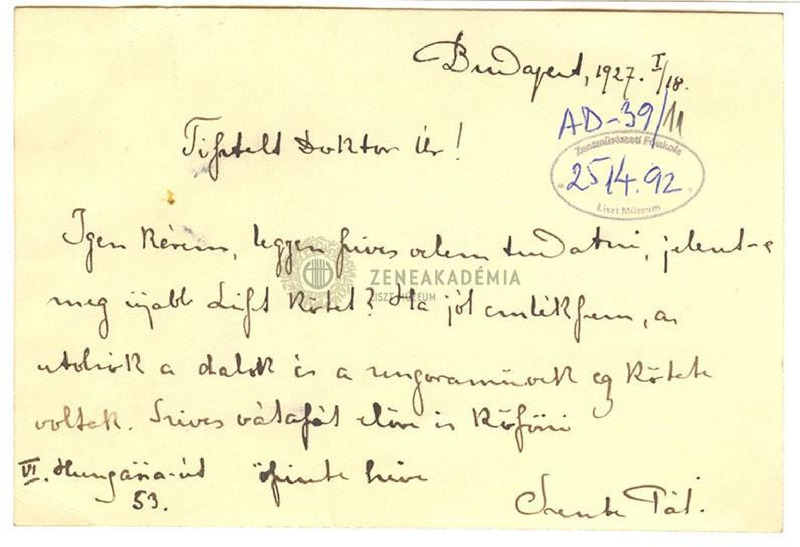 Budapest, 1927. I/18.
AD-39/11
Tisztelt Doktor Úr!
Zeneművészeti Főiskola
2514.92
Liszt Múzeum
Igen kérem, legyen szives velem tudatni, jelent-e
ZENEAKADÉMIA
LISZT MÚZEUM
meg újabb Liszt kötet? Ha jól emlékszem, az
utolsók a dalok és a zongoraművek egy kötete
voltak. Szives válaszát előre is köszöni
VI. Hungária-út őszinte híve
53.
Pál